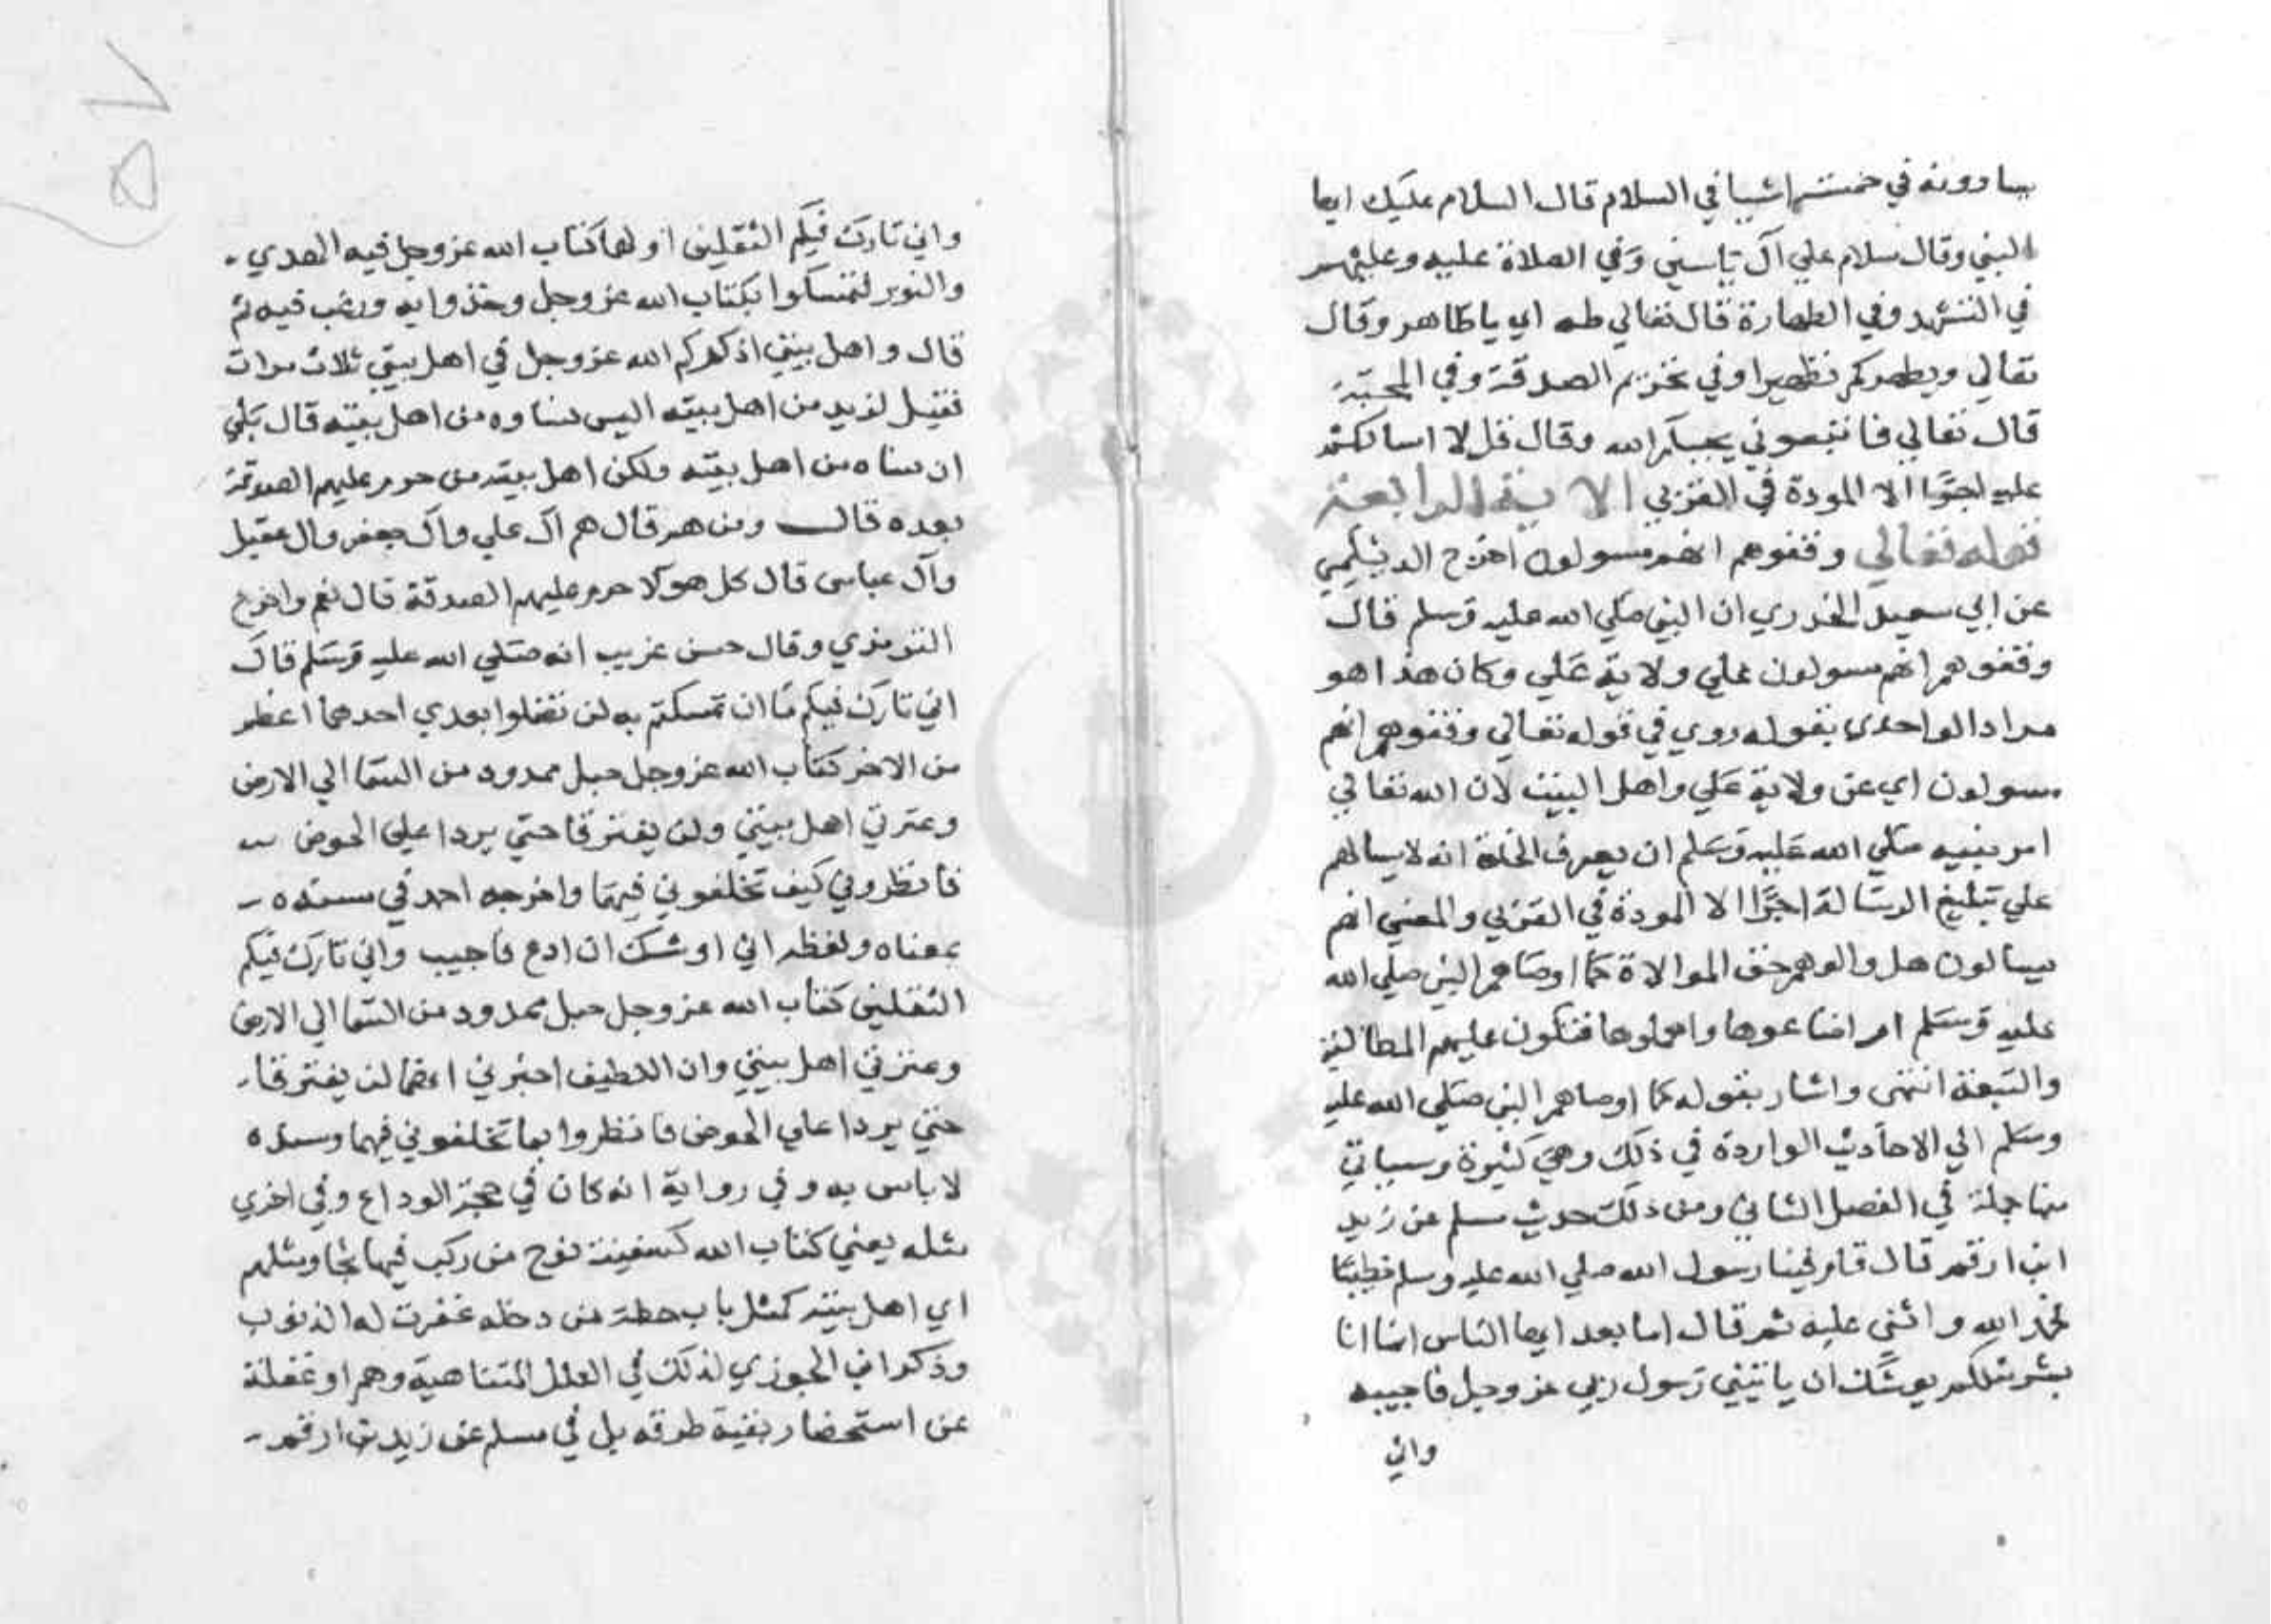 يساوونه في خمسة اشيا في السلام قال السلام عليك ايها
النبي وقال سلام علي آل ياسين وفي الصلاة عليه وعليهم
في التشهد وفي الطهارة قال تعالي طه اي يا طاهر وقال
تعالي ويطهركم تطهيرا وفي تحريم الصدقة وفي المحبة
قال تعالي فاتبعوني يحببكم الله وقال قل لا اسالكم
عليه اجرا الا المودة في القربي الاية الرابعة
قوله تعالي وقفوهم انهم مسولون اخرج الديلمي
عن ابي سعيد الخدري ان النبي صلي الله عليه وسلم قال
وقفوهم انهم مسولون علي ولاية علي وكان هذا هو
مراد الواحدي بقوله روي في قوله تعالي وقفوهم انهم
مسولون اي عن ولاية علي واهل البيت لان الله تعالي
امر نبيه صلي الله عليه وسلم ان يعرف الخلق انه لا يسالهم
علي تبليغ الرسالة اجرا الا المودة في القربي والمعني انهم
يسالون هل والوهم حق الموالاة كما اوصاهم النبي صلي الله
عليه وسلم ام اضاعوها واهملوها فتكون عليهم المطالبة
والتبعة انتهي واشار بقوله كما اوصاهم النبي صلي الله عليه
وسلم الي الاحاديث الواردة في ذلك وهي كثيرة وسياتي
منها جملة في الفصل الثاني ومن ذلك حديث مسلم عن زيد
ابن ارقم قال قام فينا رسول الله صلي الله عليه وسلم خطيبا
فحمد الله واثني عليه ثم قال اما بعد ايها الناس انما انا
بشر مثلكم يوشك ان ياتيني رسول ربي عز وجل فاجيبه
واني
واني تارك فيكم الثقلين اولهما كتاب الله عز وجل فيه الهدي
والنور فتمسكوا بكتاب الله عز وجل وخذوا به ورغب فيه ثم
قال واهل بيتي اذكركم الله عز وجل في اهل بيتي ثلاث مرات
فقيل لزيد من اهل بيته اليس نساوه من اهل بيته قال بلي
ان نساه من اهل بيته ولكن اهل بيته من حرم عليهم الصدقة
بعده قال ومن هم قال هم آل علي وآل جعفر وال عقيل
وآل عباس قال كل هولا حرم عليهم الصدقة قال نعم واخرج
الترمذي وقال حسن غريب انه صلي الله عليه وسلم قال
اني تارك فيكم ما ان تمسكتم به لن تضلوا بعدي احدهما اعظم
من الاخر كتاب الله عز وجل حبل ممدود من السما الي الارض
وعترتي اهل بيتي ولن يفترقا حتي يردا علي الحوض
فانظروني كيف تخلفوني فيهما واخرجه احمد في مسنده
بمعناه ولفظه اني اوشك ان ادعي فاجيب واني تارك فيكم
الثقلين كتاب الله عز وجل حبل ممدود من السما الي الارض
وعترتي اهل بيتي وان اللطيف اخبرني انهما لن يفترقا
حتي يردا علي الحوض فانظروا بما تخلفوني فيهما وسنده
لا باس به وفي رواية انه كان في حجة الوداع وفي اخري
مثله يعني كتاب الله كسفينة نوح من ركب فيها نجا ومثلهم
اي اهل بيته كمثل باب حطة من دخله غفرت له الذنوب
وذكر ابن الجوزي لذلك في العلل المتناهية وهم او غفلة
عن استحضار بقية طرقه بل في مسلم عن زيد بن ارقم